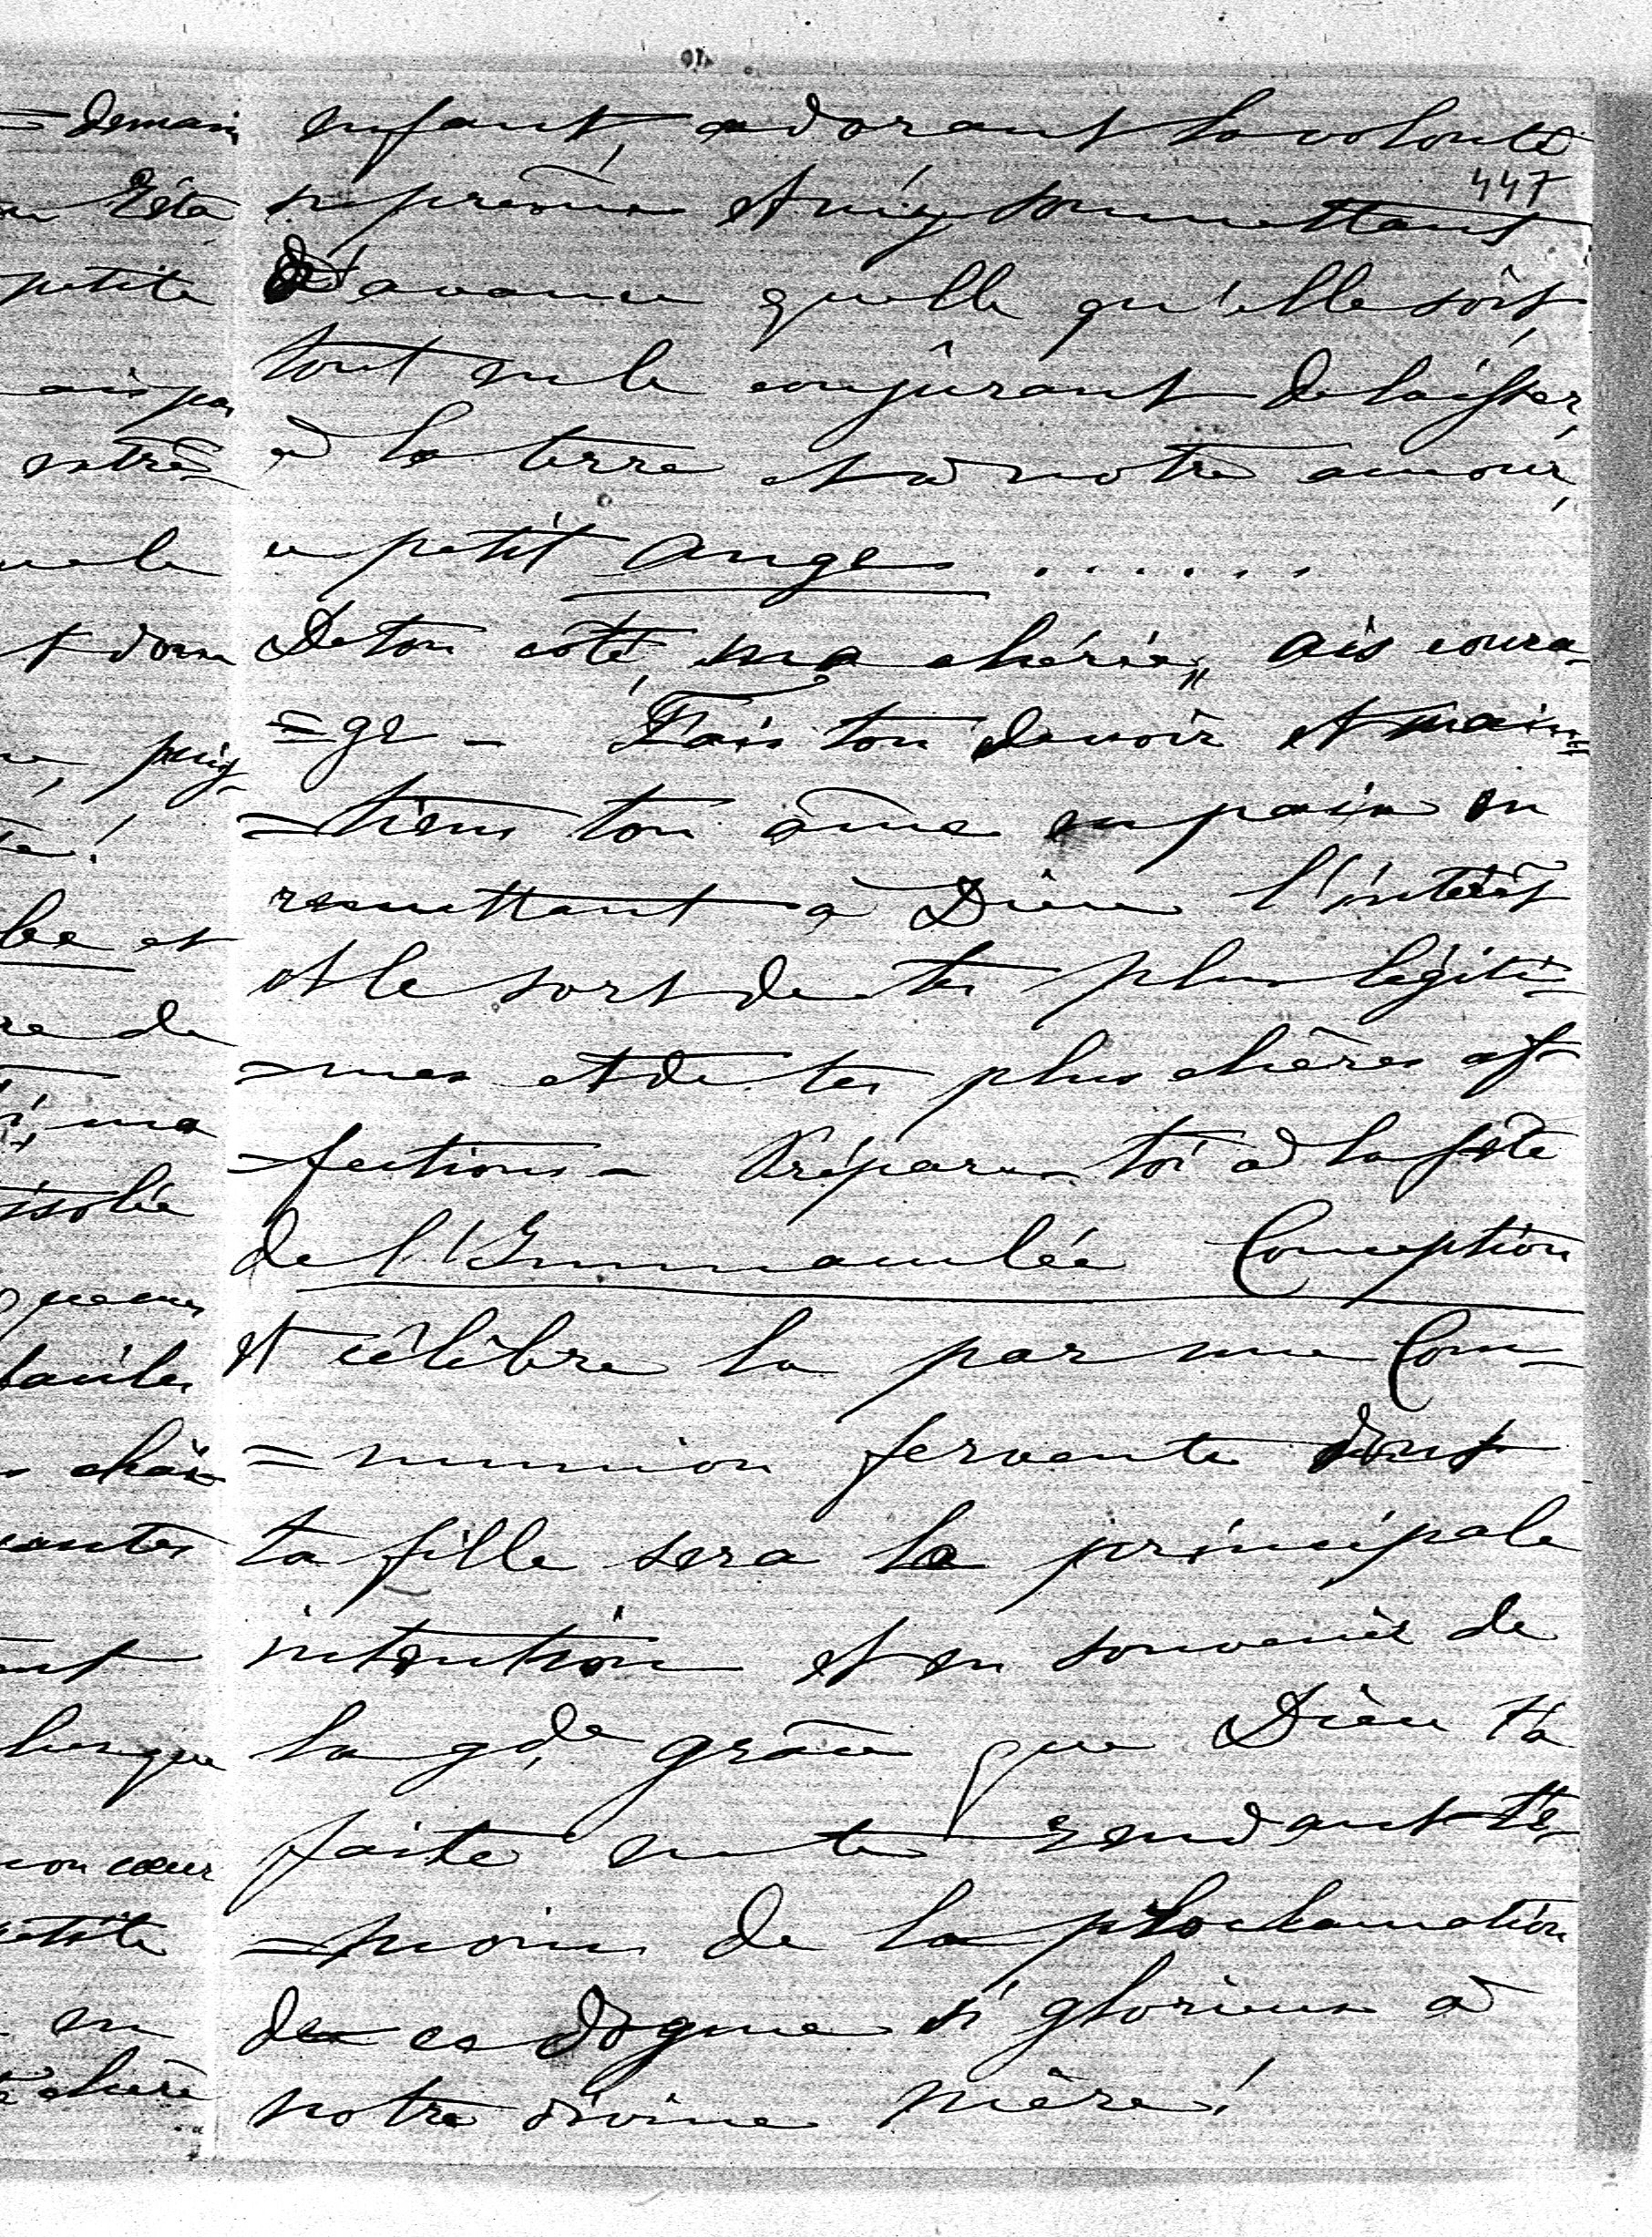 enfant, adorant la volonté
447
suprême et m'y soumettant
d'avance quelle qu'elle soit,
tout en le conjurant de laisser,
à la terre et à notre amour,
ce petit ange .......
De ton côté, ma chérie, ais coura-
=ge - Fais ton devoir et main=
=tiens ton âme en paix en
remettant à Dieu l'intérêt
et le sort de tes plus légiti=
=mes et de tes plus chères af-
=fections - Prépare-toi à la fête
de l'Immaculée Conception
et célèbre la par une Com=
=munion fervente dont
ta fille sera la principale
intention et en souvenir de
la gde grâce que Dieu t'a
faite en te rendant té-
=moin de la proclamation
de ce dogme si glorieux à
notre divine mère!
= demain
petite
ais pas
entrée
et
re de
ma
isolée
mon cœur
petite
en
chère